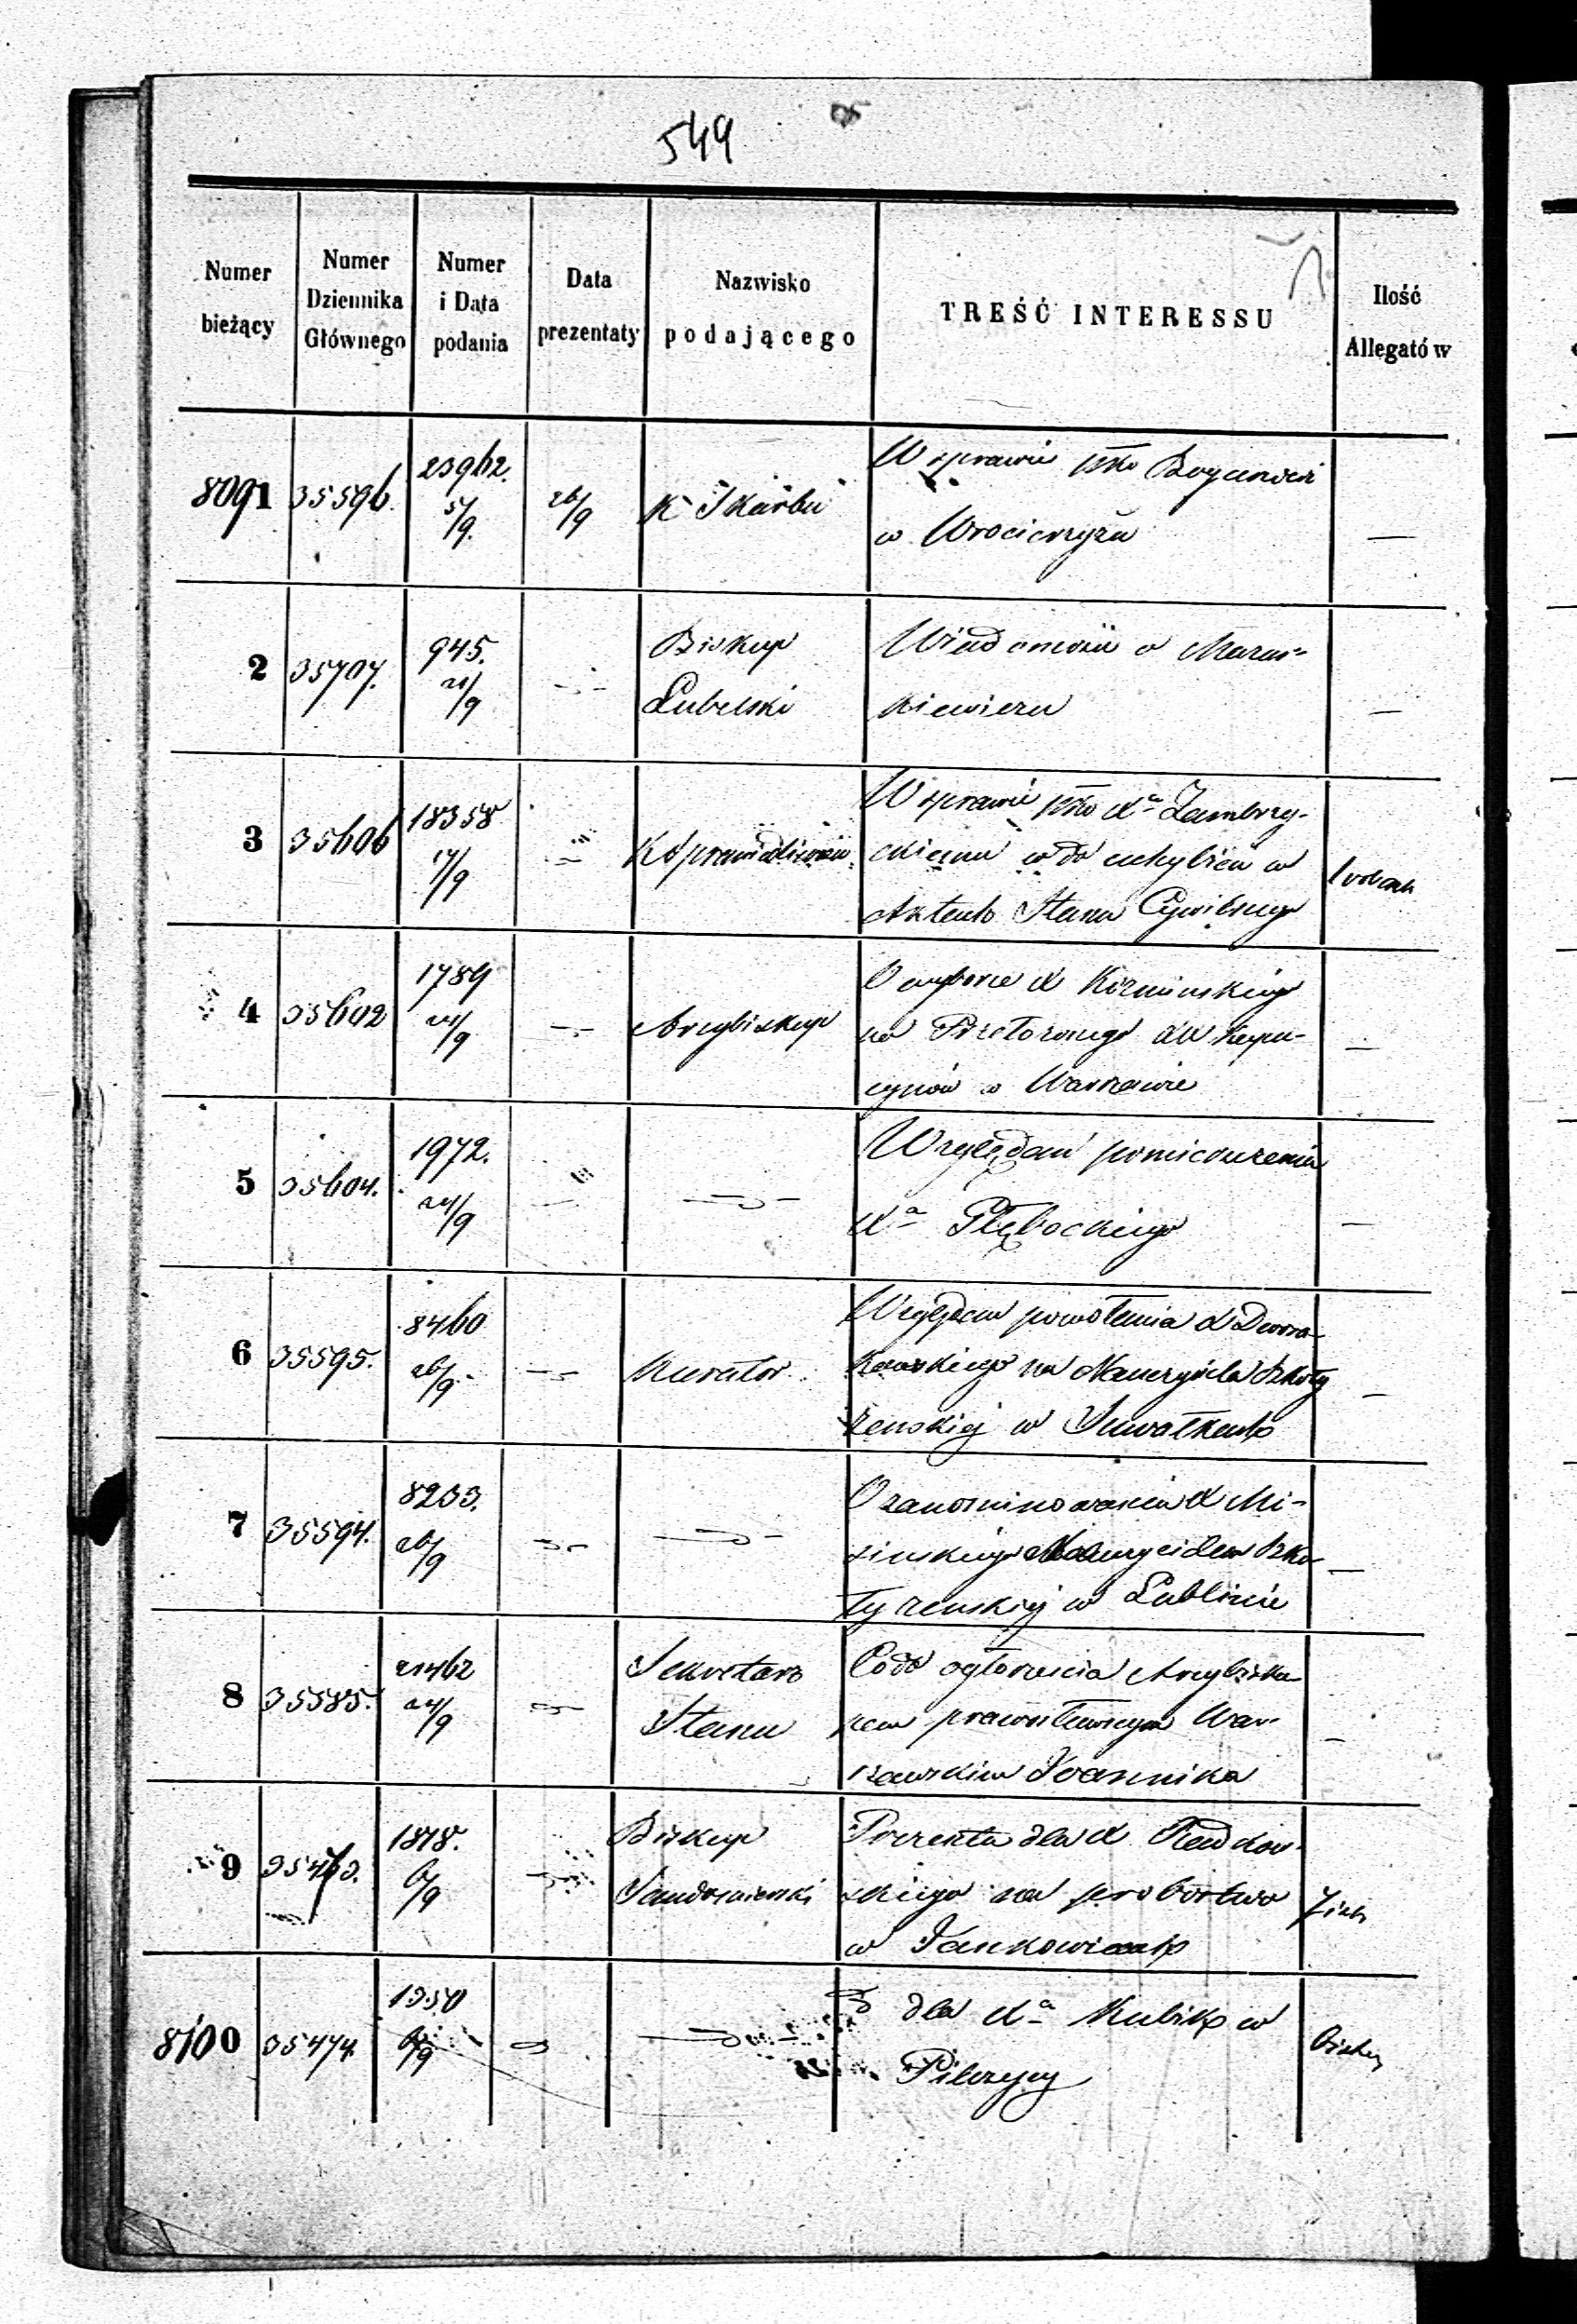 549
Numer bieżący
Numer Dziennika Głównego
Numer i Data podania
Data prezentaty
Nazwisko podającego
TREŚĆ INTERESSU
Ilość Allegatów
8091 35596. 23962. 5/9. 26/9 K. Skarbu
W sprawie
w Wrocieryżu
2 35707. 945. 21/9 Biskup Lubelski
Wiadomość o
kiewiczu
3 35606 18358 17/9 K. Sprawiedliwości
W sprawie Xa Zambrzy-
ckiemu w do uchybień w
Aktach Stanu Cywilnego
4 35602 1789 24/9 Arcybiskup
O wyborze X Koźmińskiego
na Przełożonego XX Kapu-
cynów w Warszawie
5 35604. 1972. 24/9
Względem pomieszczenia
Xa Głębockiego
6 35595. 8460 26/9. Kurator
Względem powołania X Dwora-
kowskiego na Nauczyciela Szkoły
żeńskiej w Suwałkach
7 35594. 8233. 26/9
O zanominowaniu X Mi-
sińskiego Nauczycielem Szko-
ły żeńskiej w Lublinie
8 35585. 21462 24/9 Sekretarz Stanu
Codo ogłoszenia Arcybisku-
pem prawosławnym War-
szawskim Joannika
9 35473. 1878. 6/9 Biskup Sandomierski
Prezenta dla X
skiego na probostwo
w Jankowicach
8100 35474 1350 6/9
dla Xa Kubik w
Pilczycy